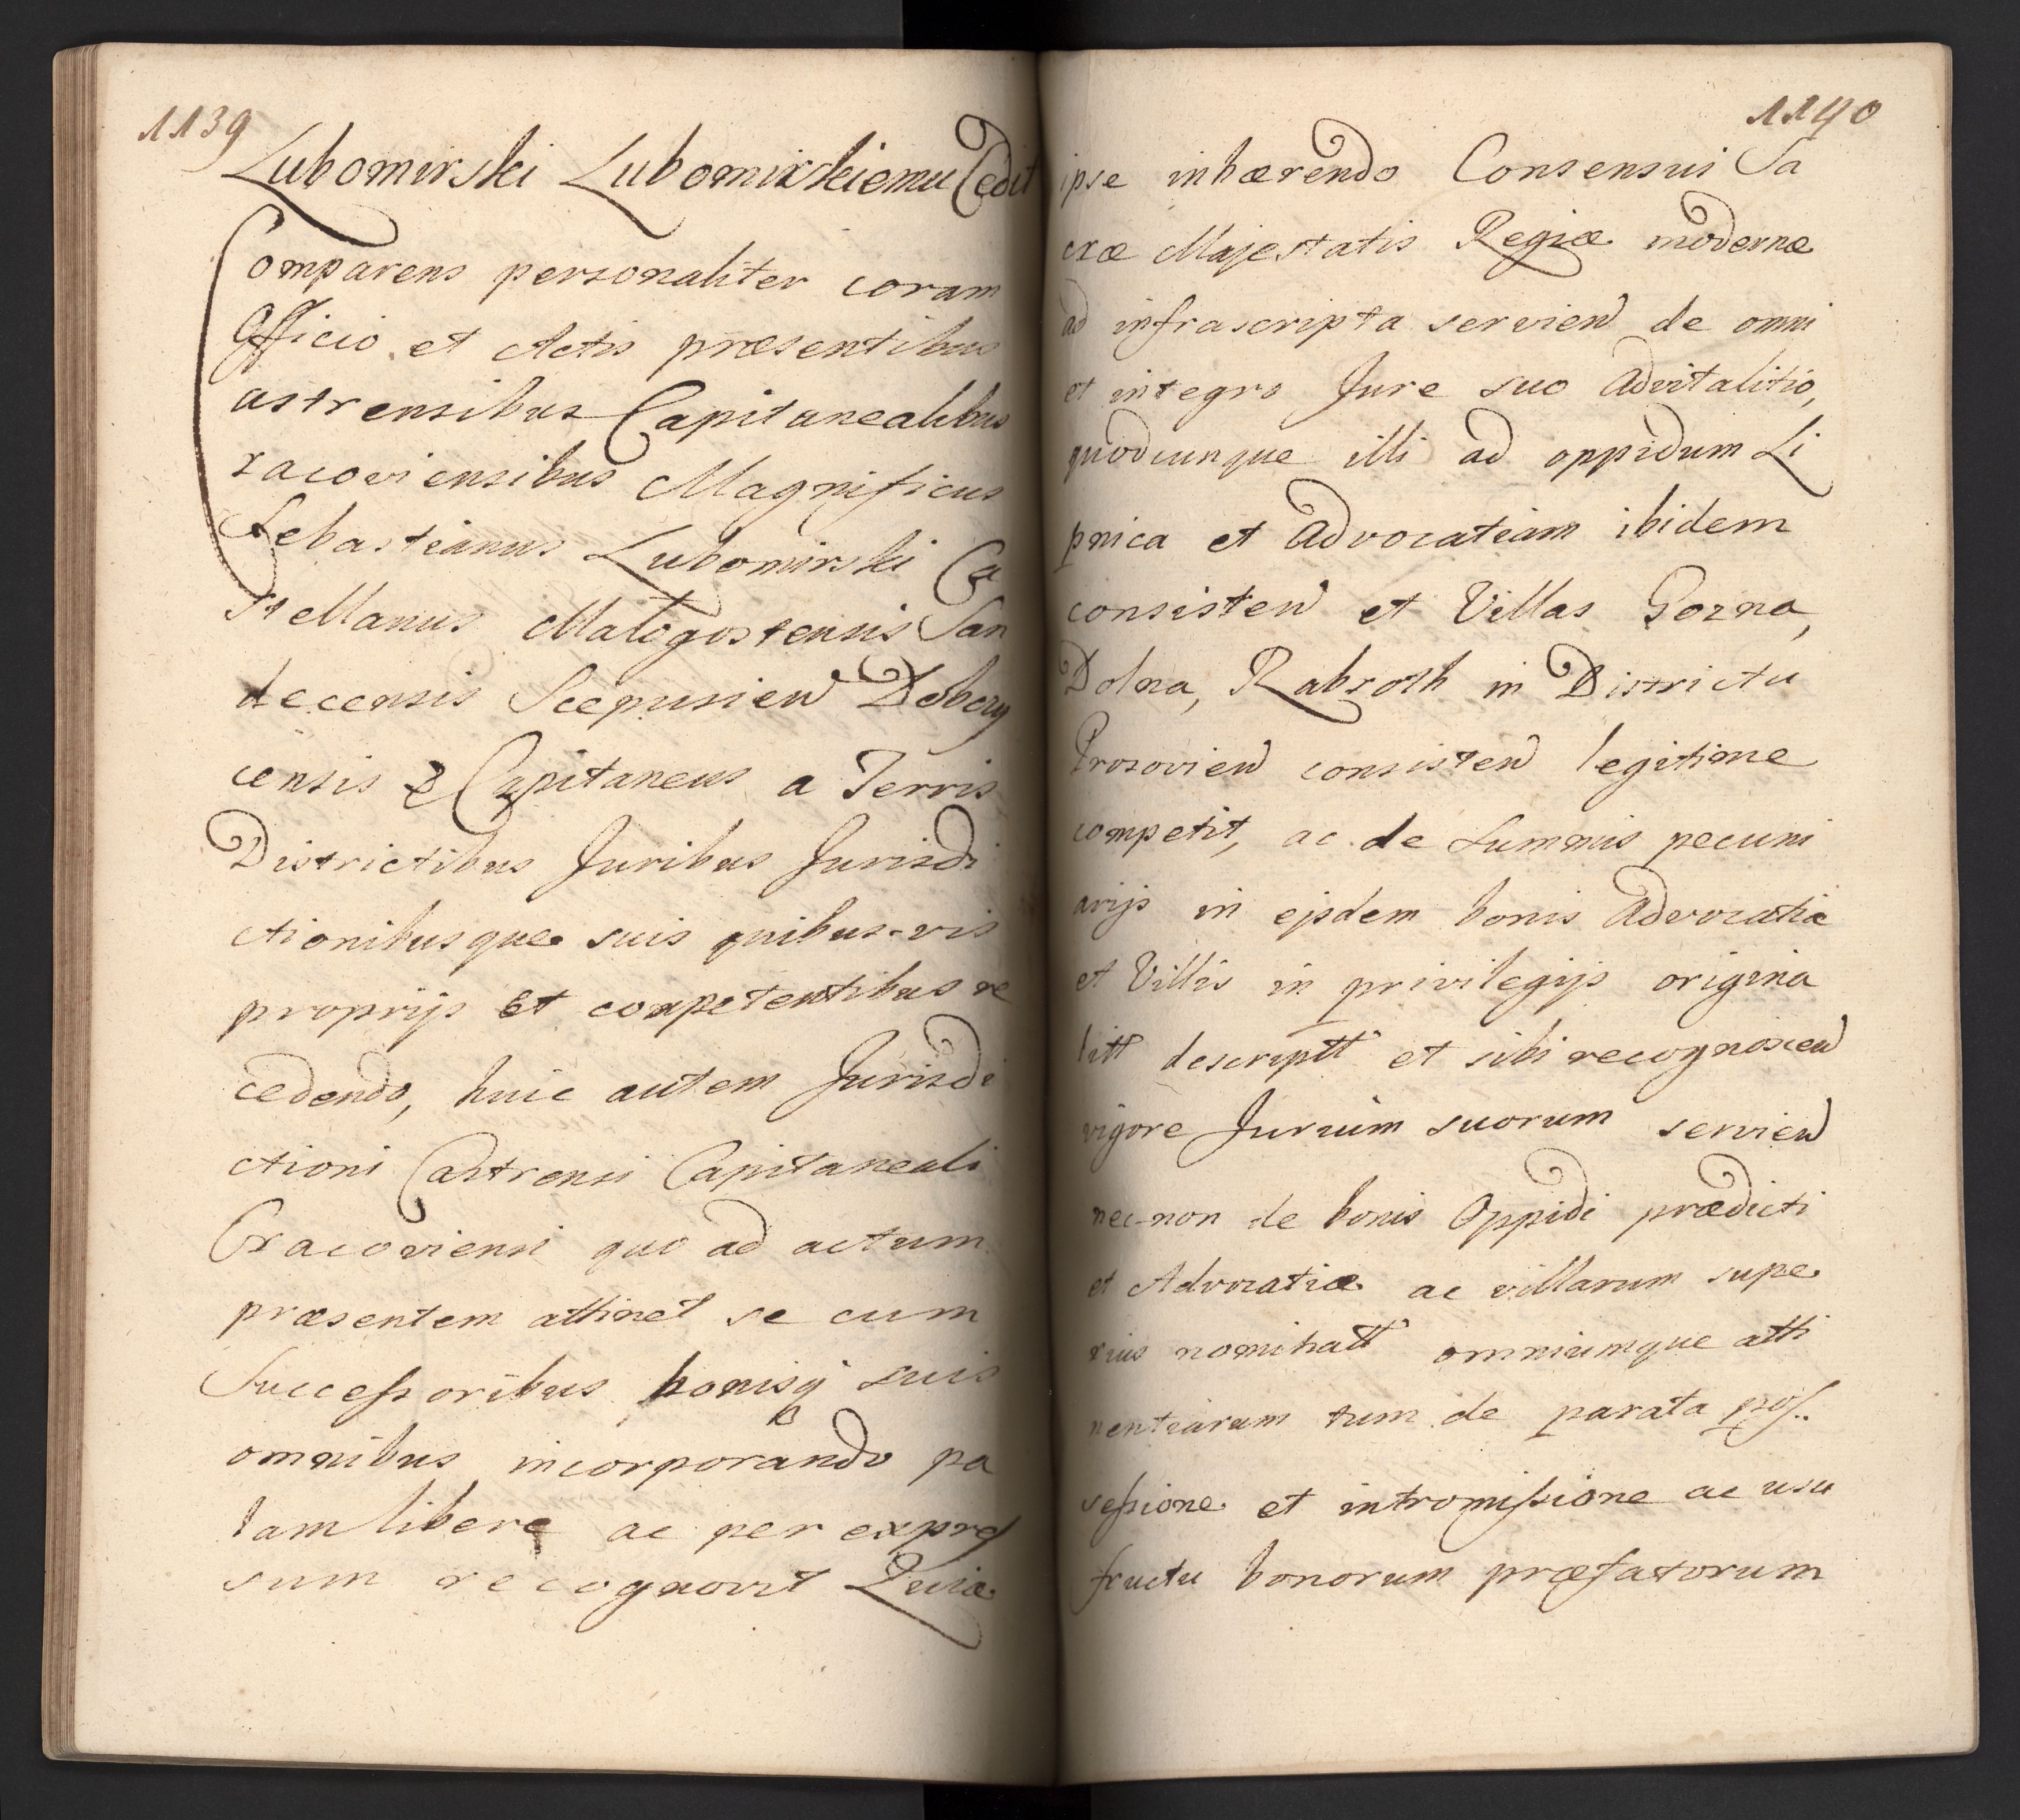 1139
Lubomirski Lubomirskiemu Cedit
Comparens personaliter coram
Officio et Actis præsentibus
astrensibus Capitanealibus
racoviensibus Magnificus
Sebastianus Lubomirski Ca
stellanus Malogostensis San
decensis Scepusien Dobczy
censis & Capitaneus a Terris
Districtibus Juribus Jurisdi
ctionibusque suis quibus-vis
proprijs et competentibus re
cedendo, huic autem Jurisdi
ctioni Castrensi Capitaneali
Cracoviensi quo ad actum
præsentem attinet se cum
Successoribus bonisq suis
omnibus incorporando pa
lam libere ac per expres
sum recognovit Quia
1140
ipse inhærendo Consensui Sa
cræ Majestatis Regiæ modernæ
ad infrascripta servien de omni
et integro Jure suo Advitalitio,
quodcunque illi ad oppidum Li
pnica et Advocatiam ibidem
consisten et Villas Gorna,
Dolna, Rabroth in Districtu
Prosovien consisten legitime
competit, ac de Summis pecuni
arijs in ejsdem bonis Advocatiæ
et Villis in privilegijs origina
litt descriptt et sibi recognoscen
vigore Jurium suorum servien
nec-non de bonis Oppidi prædicti
et Advocatiæ ac villarum supe
rius nominatt omniumque atti
nentiarum tum de parata pos..
sessione et intromissione ac usu
fructu bonorum præfatorum